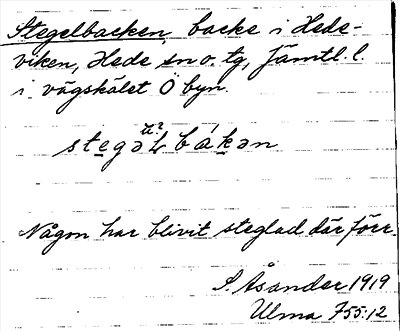 Stegelbacken, backe i Hede-
viken, Hede sn o. tg, Jämtl. l.
i vägskälet Ö byn.
ä?
stegəL bákən
Någon har blivit steglad där förr.
S. Åsander 1919
Ulma 755:12